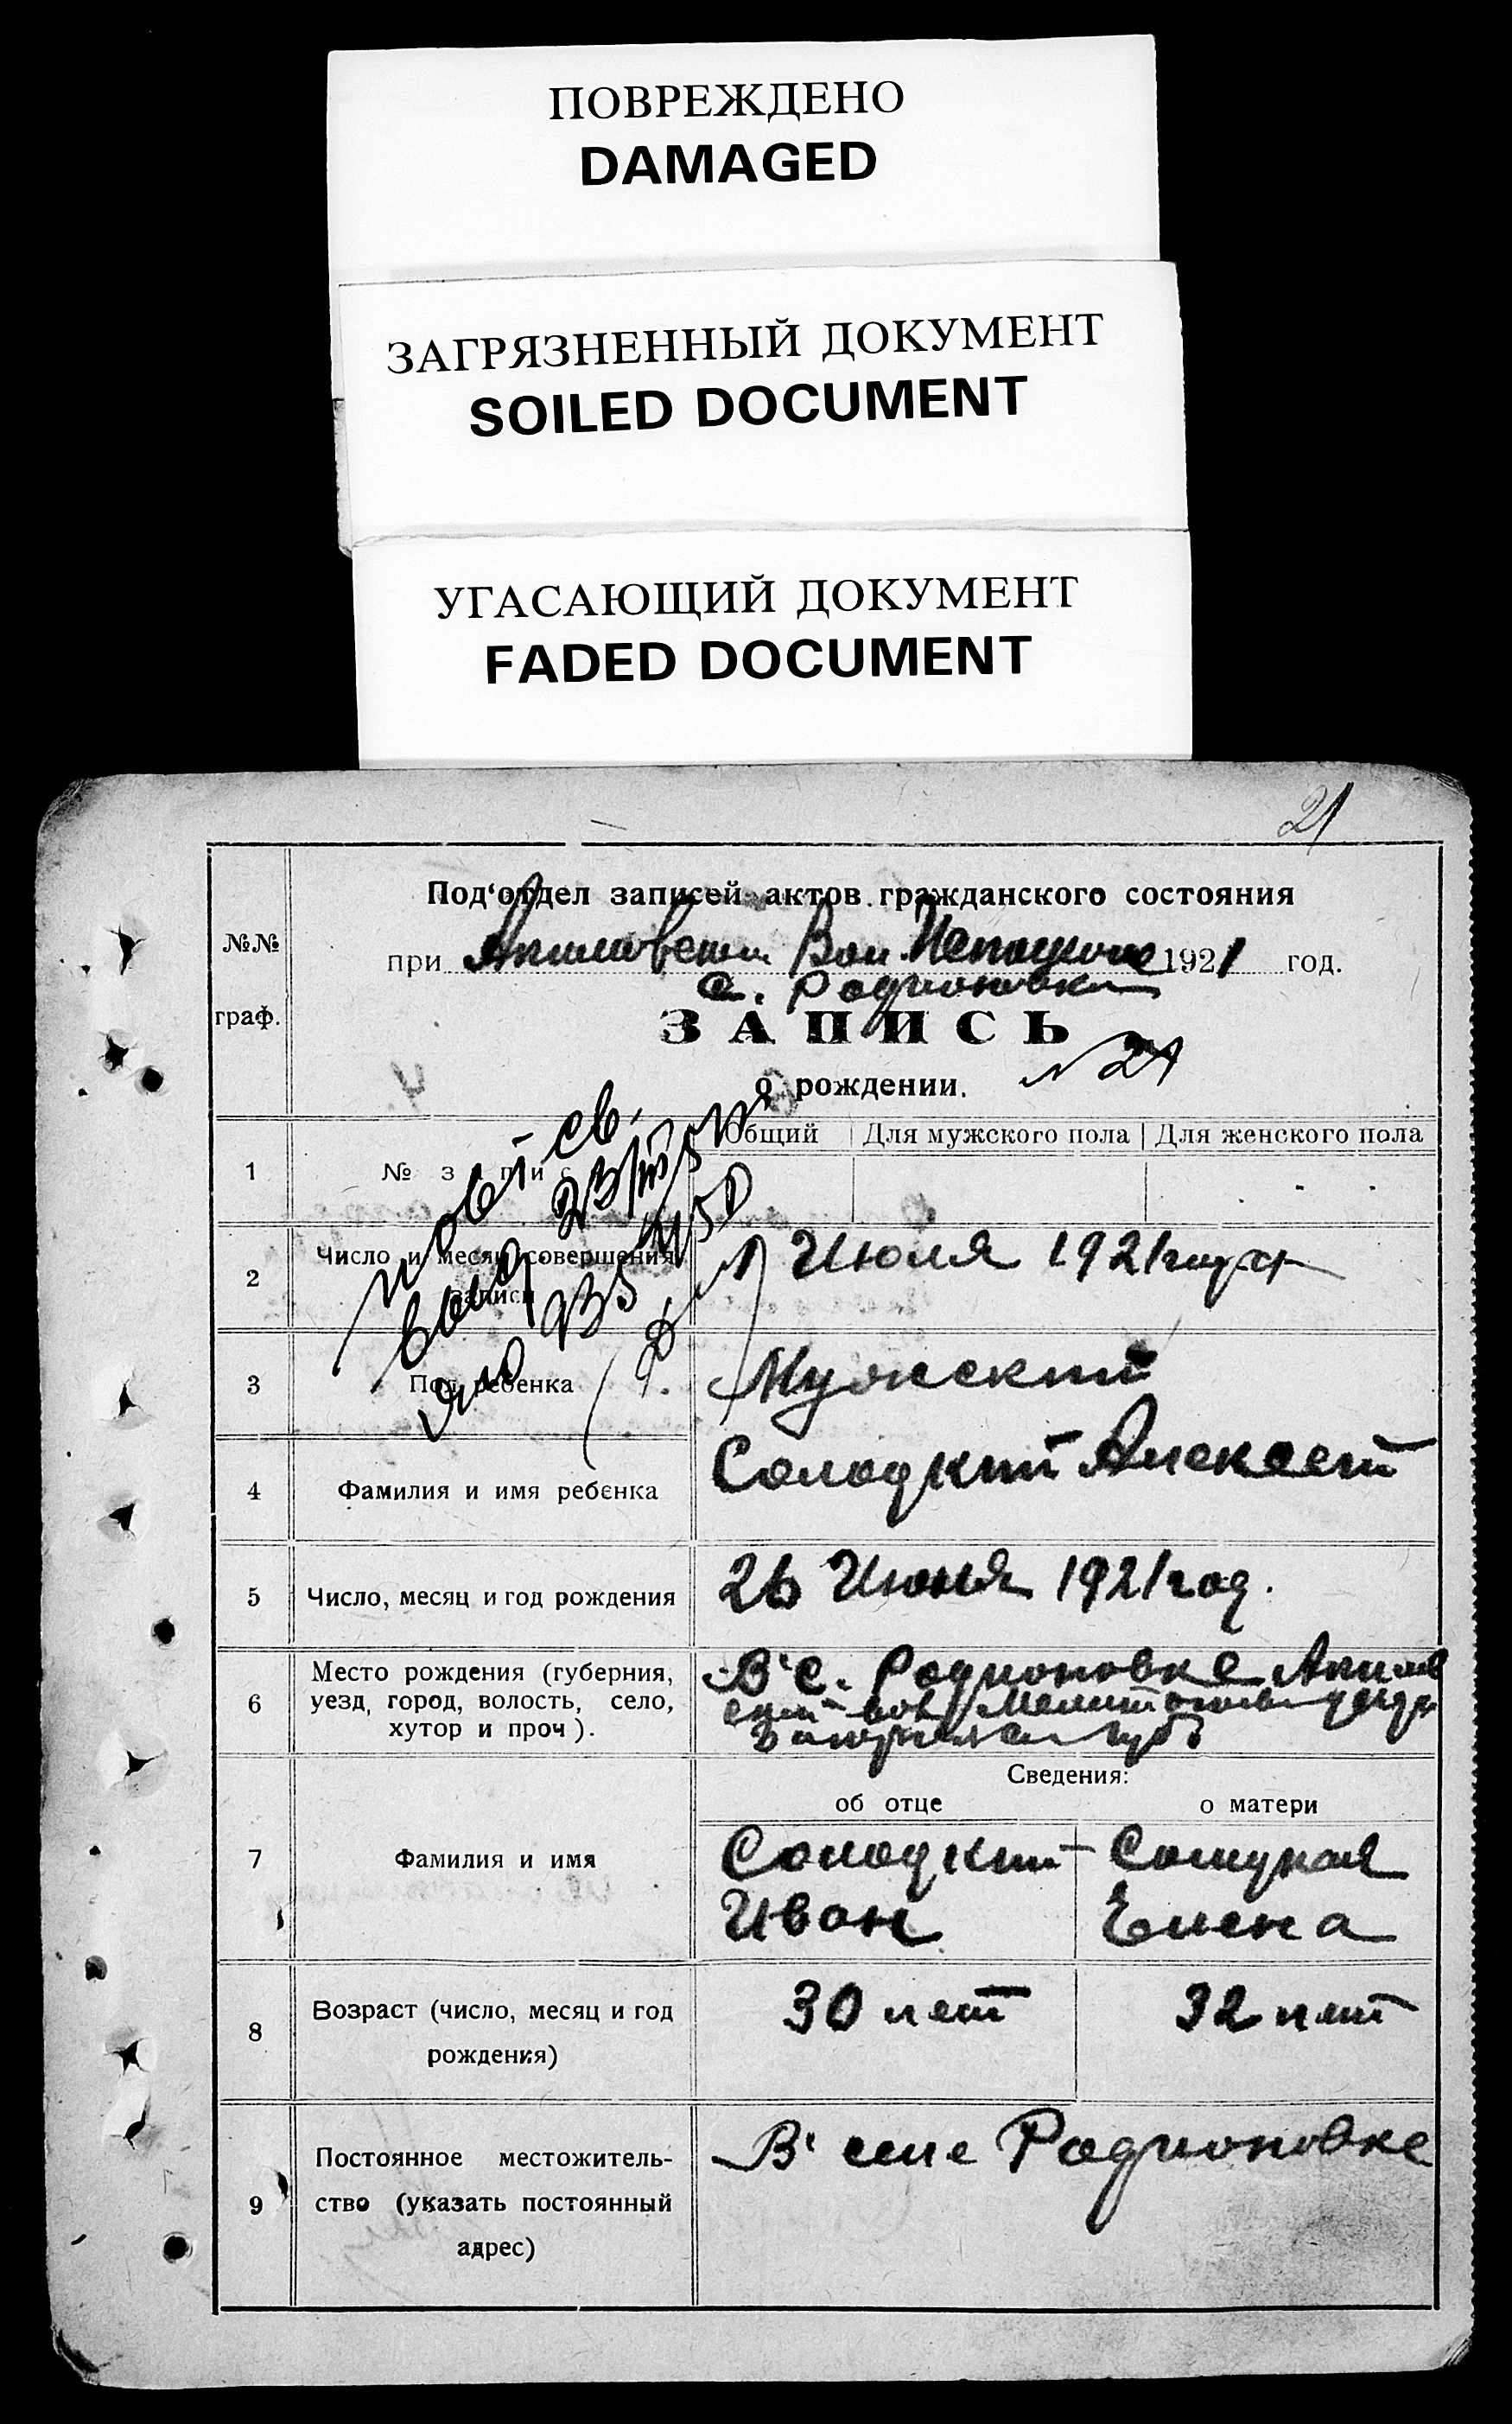 ПОВРЕЖДЕНО
DAMAGED
ЗАГРЯЗНЕННЫЙ ДОКУМЕНТ
SOILED DOCUMENT
УГАСАЮЩИЙ ДОКУМЕНТ
FADED DOCUMENT
21
Под‘отдел записей актов гражданского состояния
№№ граф.
при Вол. 1921 год.
с. Родионовки
ЗАПИСЬ
о рождении. N 21
Общий Для мужского пола Для женского пола
1 № записи
2 Число и месяц совершения записи Июля 1921 года
3 Пол ребенка Мужский
4 Фамилия и имя ребенка Солодкий Алексей
5 Число, месяц и год рождения 26 Июня 1921 год.
6 Место рождения (губерния, уезд, город, волость, село, хутор и проч). В с. Родионовке Акимов
ской вол. губ
Сведения:
об отце о матери
7 Фамилия и имя Солодкий Солодкая
Иван Елена
8 Возраст (число, месяц и год рождения) 30 лет 32 лет
9 Постоянное местожительство (указать постоянный адрес) В селе Родионовке